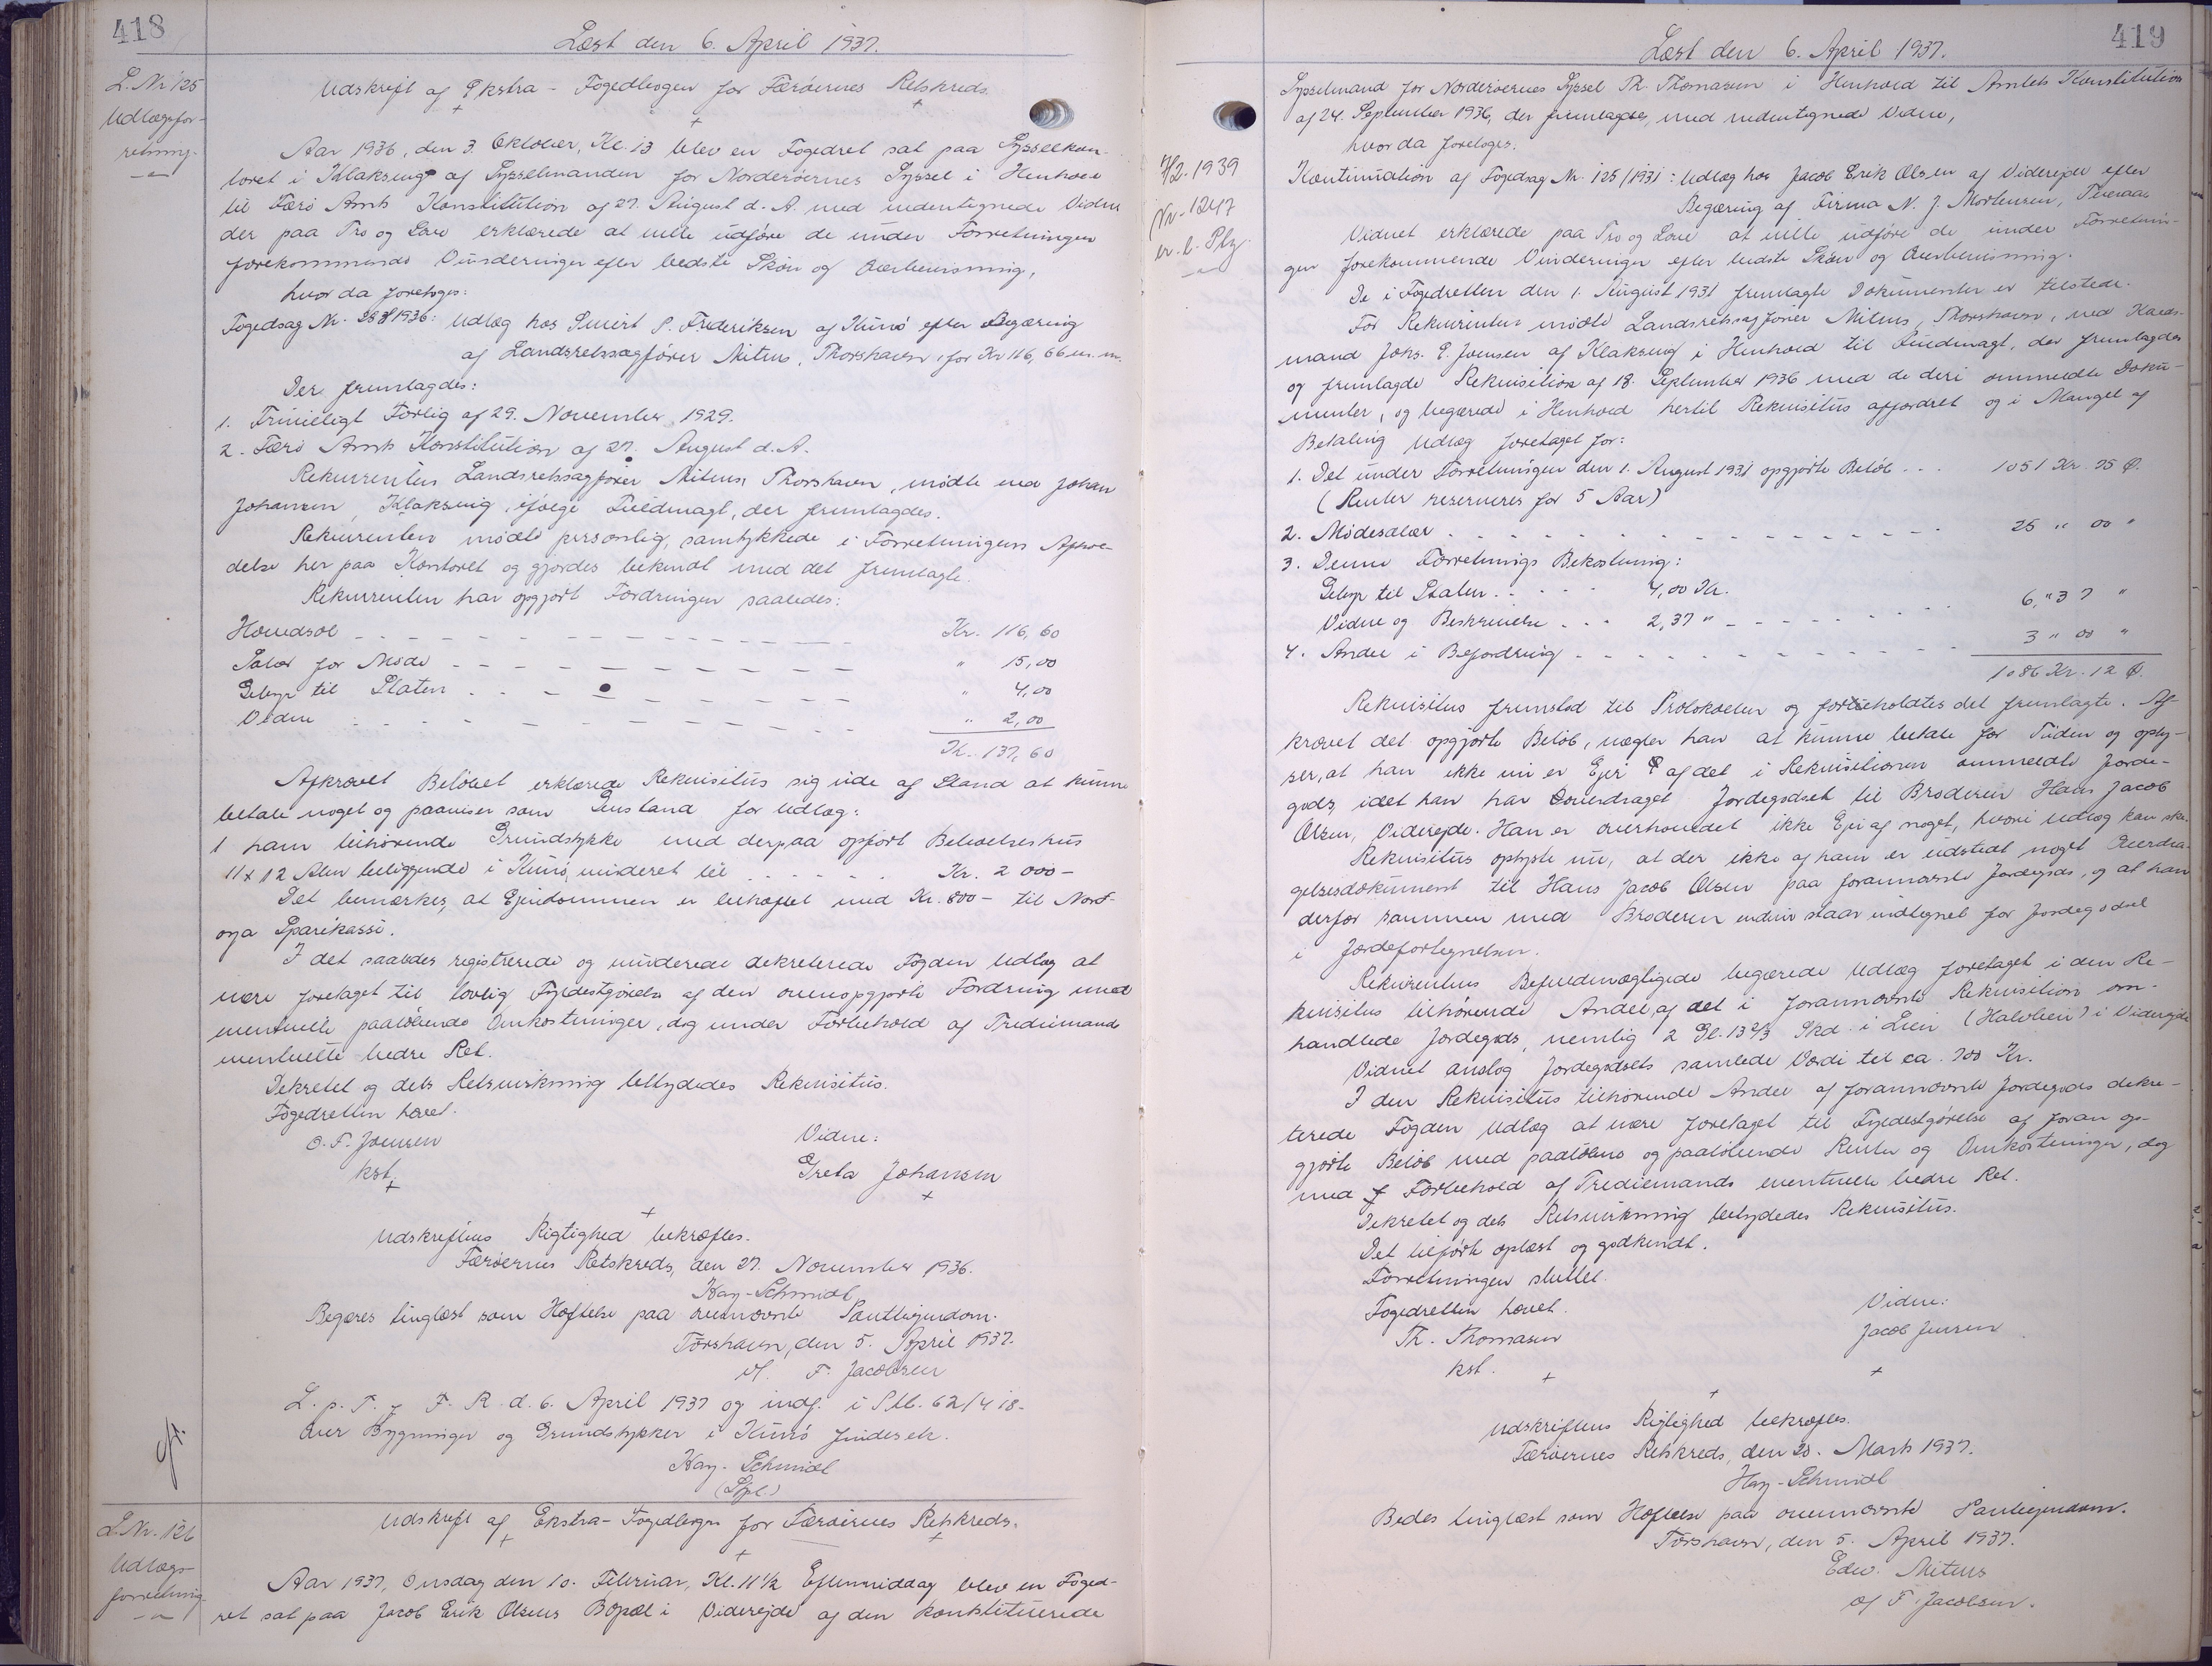 418
Læst den 6. April 1937.
L. Nr 125
Udlægsfor-
retning.
Udskrift af Ekstra-Fogedbogen for Færøernes Retskreds.
Aar 1936, den 3. Oktober, Kl. 13 blev en Fogedret sat paa Sysselkon-
toret i Klaksvig af Sysselmanden for Norderøernes Syssel i Henhold
til Færø Amts Konstitution af 27. August d. A. med undertegnede Vidne
der paa Tro og Love erklærede at ville udføre de under Forretningen
forekommende Vurderinger efter bedste Skøn og Overbevisning,
hvor da foretoges:
Fogedsag Nr. 288/1936: Udlæg hos Sivert P. Frederiksen af Kunø efter Begæring
af Landsretssagfører Mitens, Thorshavn, for Kr 116,66 m. m.
Der fremlagdes:
1. Frivilligt Forlig af 29. November 1929.
2. Færø Amts Konstitution af 27. August d. A.
Rekvirentens Landsretssagfører Mitens, Thorshavn, mødte ved Johan
Johansen, Klaksvig, ifølge Fuldmagt, der fremlagdes.
Rekvirenten mødte personlig, samtykkede i Forretningens Afhol-
delse her paa Kontoret og gjordes bekendt med det fremlagte.
Rekvirenten har opgjort Fordringen saaledes:
Hovedsol Kr. 116,60
Salær for Møde " 15,00
Gebyr til Staten " 4,00
Vidne " 2,00
Kr. 137,60
Afkrævet Beløbet erklærede Rekvisitus sig ude af Stand at kunne
betale noget og paaviser som Genstand for Udlæg:
1 ham tilhørende Grundstykke med derpaa opført Beboelseshus
11 x 12 Alen beliggende i Kunø, vurderet til Kr. 2 000 -
Det bemærkes, at Ejendommen er behæftet med Kr. 800 - til Nord-
oya Sparikassi.
I det saaledes registrerede og vurderede dekreterede Fogden Udlæg at
være foretaget til lovlig Fyldestgørelse af den ovenopgjorte Fordring med
eventuelle paaløbende Omkostninger, dog under Forbehold af Trediemands
eventuelle bedre Ret.
Dekretet og dets Retsvirkning betydedes Rekvisitus.
Fogedretten hævet.
O. F. Joensen Vidne:
kst. Greta Johansen
Udskriftens Rigtighed bekræftes.
Færøernes Retskreds, den 27. November 1936.
Hay-Schmidt
Begæres tinglæst som Hæftelse paa ovennævnte Panteejendom.
Torshavn, den 5. April 1937.
F. Jacobsen
L. p. T. f. F. R. d. 6. April 1937 og indf. i S.Pb. 62/418-
Over Bygninger og Grundstykker i Kunø findes etc.
Hay-Schmidt
(Stpl.)
L. Nr. 126
Udlægs-
forretning
Udskrift af Ekstra-Fogedbogen for Færøernes Retskreds.
Aar 1937, Onsdag den 10. Februar, Kl. 11 1/2 Eftermiddag blev en Foged-
ret sat paa Jacob Erik Olsens Bopæl i Viderejde af den konstituerede
419
Læst den 6. April 1937.
Sysselmand for Norderøernes Syssel Th. Thomasen i Henhold til Amtets Konstitution
af 24. September 1936, der fremlagdes, med undertegnede Vidne,
hvor da foretoges:
7/2-1939
Nr. 1247
Kontinuation af Fogedsag Nr. 125/1931: Udlæg hos Jacob Erik Olsen af Viderejde efter
Begæring af Firma N. J. Mortensen, Tveraa
Vidnet erklærede paa Tro og Love at ville udføre de under Forretnin-
gen forekommende Vurderinger efter bedste Skøn og Overbevisning.
De i Fogedretten den 1. August 1931 fremlagte Dokumenter er tilstede.
For Rekvirenten mødte Landsretssagfører Mitens, Thorshavn, ved
mand Johs. E. Joensen af Klaksvig i Henhold til Fuldmagt, der fremlagdes
og fremlagde Rekvisition af 18. September 1936 med de deri ommeldte Doku-
menter, og begærede i Henhold hertil Rekvisitus affordret og i Mangel af
Betaling Udlæg foretaget for:
1. Det under Forretningen den 1. August 1931 opgjorte Beløb 1051 Kr. 75 Ø.
(Renter reserveres for 5 Aar)
2. Mødesalær 25 " 00 "
3. Denne Forretnings Bekostning:
Gebyr til Staten 4,00 Kr.
Vidne og Beskrivelse 2,37 " 6, " 37 "
4. Andel i Befordring 3 " 00 "
1086 Kr. 12 Ø.
Rekvisitus fremstod til Protokollen og forbeholdtes det fremlagte. Af-
krævet det opgjorte Beløb, nægter han at kunne betale for Tiden og oply-
ser, at han ikke nu er Ejer af det i Rekvisitionen ommeldte Jorde-
gods, idet han har overdraget Jordegodset til Broderen Hans Jacob
Olsen, Viderejde. Han er overhovedet ikke Ejer af noget, hvori Udlæg kan ske.
Rekvisitus oplyste nu, at der ikke af ham er udstedt noget Overdra-
gelsesdokument til Hans Jacob Olsen paa forannævnte Jordegods, og at han
derfor sammen med Broderen endnu staar indtegnet for Jordegodset
i Jordefortegnelsen.
Rekvirentens Befuldmægtigede begærede Udlæg foretaget i den Re-
kvisitus tilhørende Andel af det i forannævnte Rekvisition om-
handlede Jordegods, nemlig 2 Gl. 13 2/3 Skd. i Lien (Halvlien) i Viderejde
Vidnet anslog Jordegodsets samlede Værdi til ca. 700 Kr.
I den Rekvisitus tilhørende Andel af forannævnte Jordegods dekre-
terede Fogden Udlæg at være foretaget til Fyldestgørelse af foran op-
gjorte Beløb med paaløbne og paaløbende Renter og Omkostninger, dog
med Forbehold af Trediemands eventuelle bedre Ret.
Dekretet og dets Retsvirkning betydedes Rekvisitus.
Det tilførte oplæst og godkendt.
Forretningen sluttet.
Fogedretten hævet. Vidne:
Th. Thomasen Jacob Jensen
kst.
Udskriftens Rigtighed bekræftes.
Færøernes Retskreds, den 23. Marts 1937.
Hay-Schmidt
Bedes tinglæst som Hæftelse paa ovennævnte Panteejendom.
Torshavn, den 5. April 1937.
Edw. Mitens
F. Jacobsen.